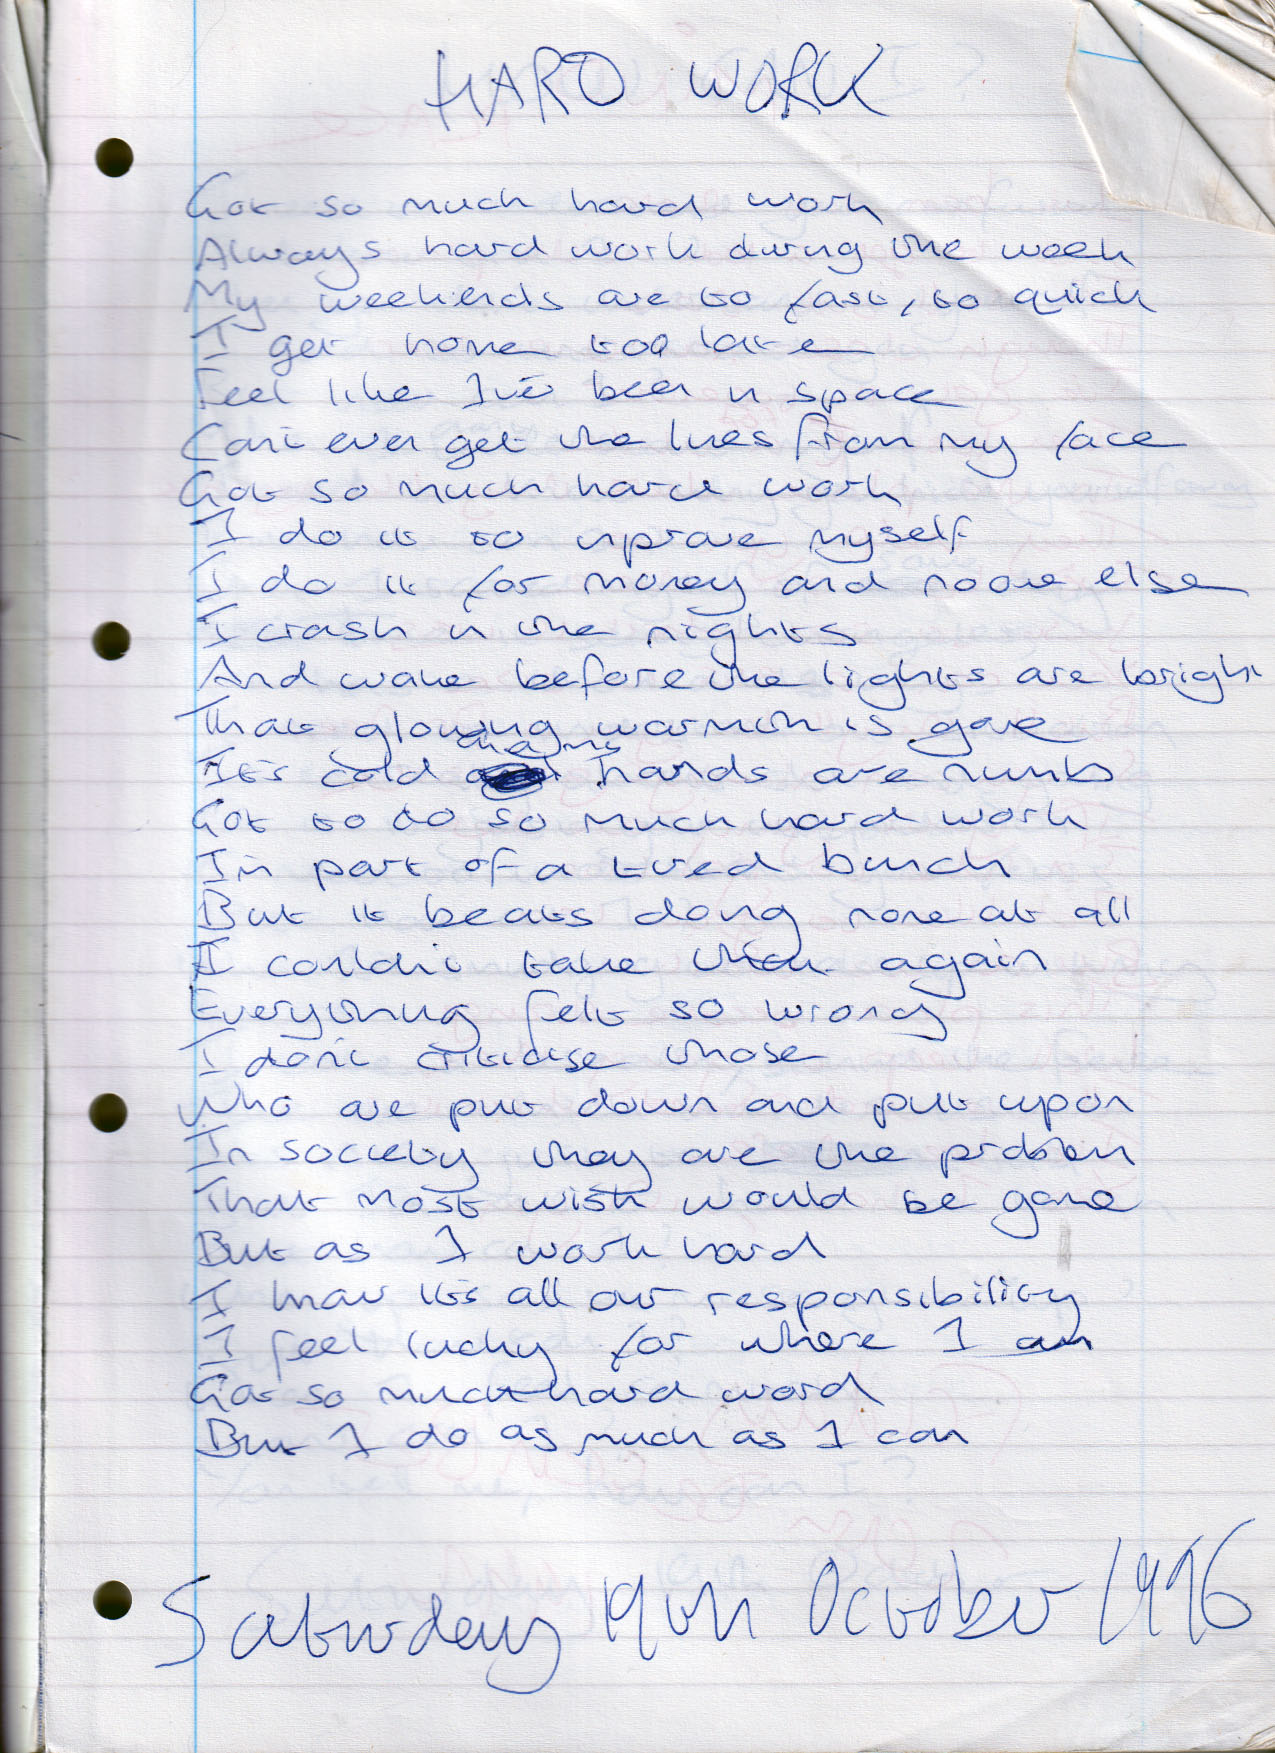 HARD WORK
Got so much hard work
Always hard work during the week
My weekends are to fast, to quick
I get home too late
Feel like I've been in space
Can't ever get the lines from my face
Got so much hard work
I do it to improve myself
I do it for money and noone else
I crash in the nights
And wake before the lights are bright
That glowing warmth is gone
It's cold my hands are numb
Got to do so much hard work
I'm part of a tired bunch
But it beats doing none at all
I couldn't take that again
Everything felt so wrong
I don't criticise those
Who are put down and put upon
In society they are the problem
That most wish would be gone
But as I work hard
I know it's all our responsibility
I feel lucky for where I am
Got so much hard word
But I do as much as I can
Saturday 19th October 1996